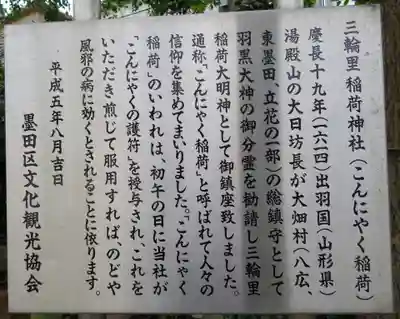 三輪里稲荷神社(こんにゃく稲荷)
慶長十九年(一六一四)出羽国(山形県)
湯殿山の大日坊長が大畑村(八広、
東墨田、立花の一部)の総鎮守として
羽黒大神の御分霊を勧請し三輪里
稲荷大明神として御鎮座致しました。
通称「こんにゃく稲荷」と呼ばれて人々の
信仰を集めてまいりました。「こんにゃく
稲荷」のいわれは、初午の日に当社が
「こんにゃくの護符」を授与され、これを
いただき煎じて服用すれば、のどや
風邪の病に効くとされることに依ります。
平成五年八月吉日
墨田区文化観光協会